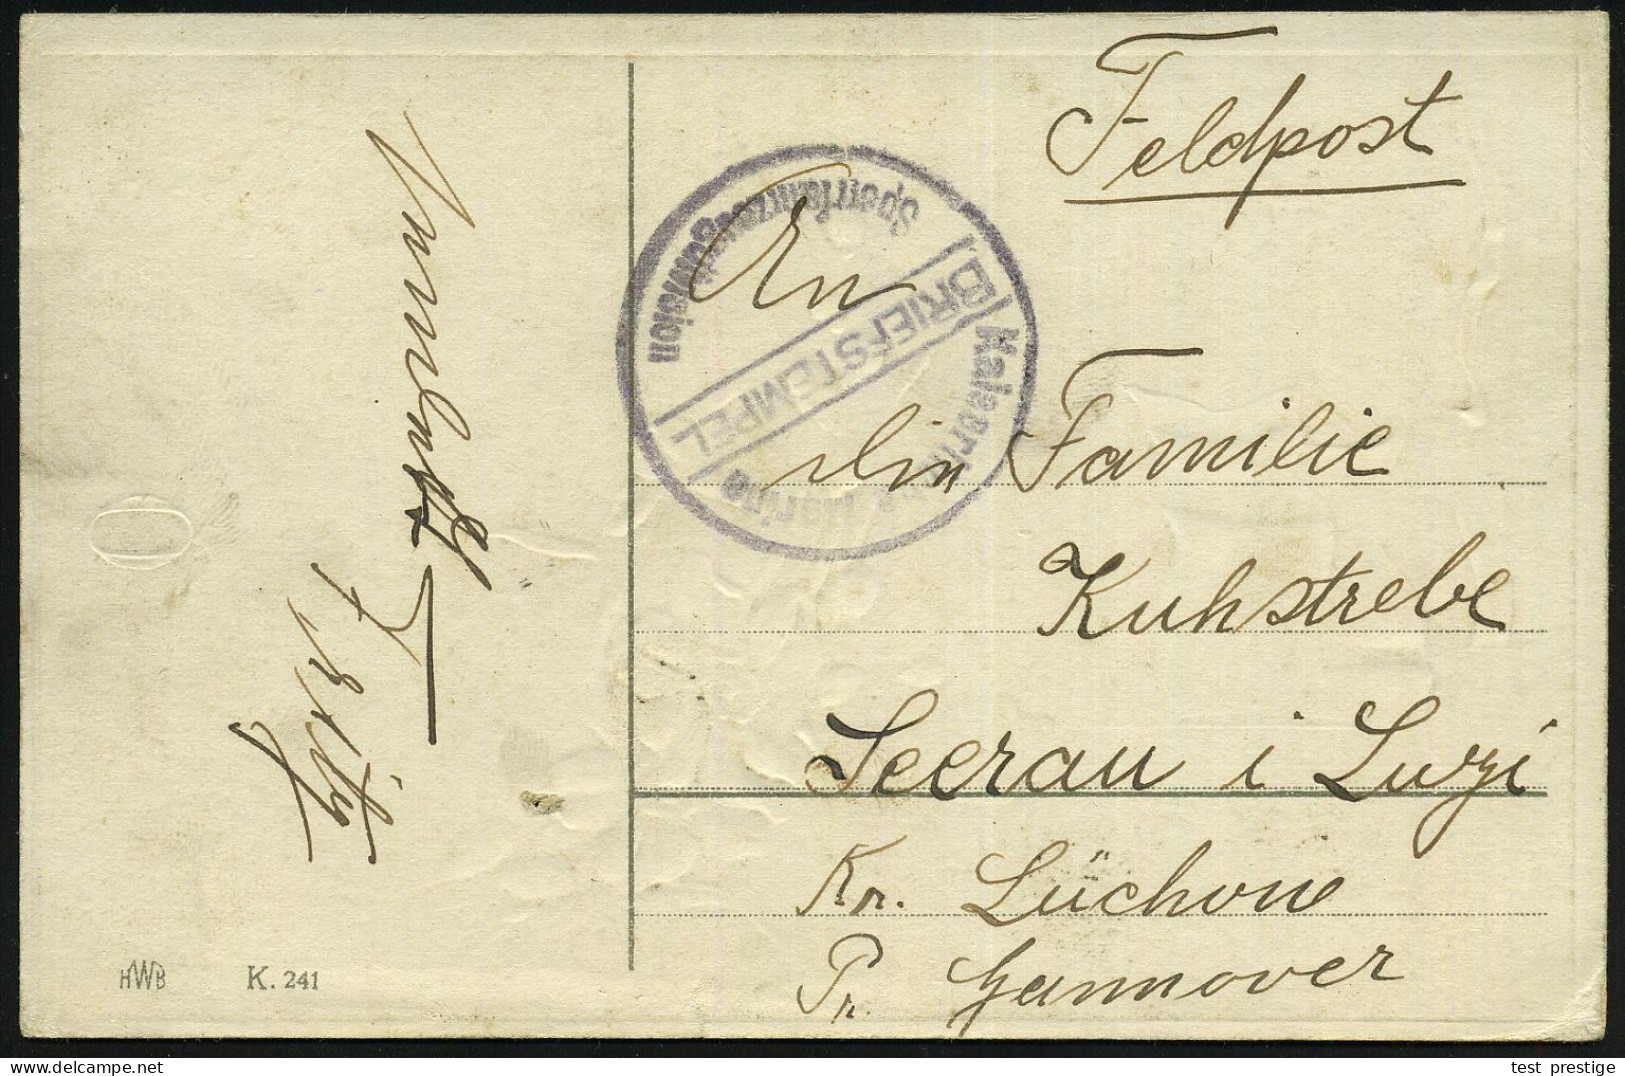 Feldpost
An
die Familie
Kuhstrebe
Seerau i Luzi
Kr. Lüchow
Pr. Hannover
Kaiserliche Marine
BRIEFSTEMPEL
Sperrfahrzeugdivision
HWB K. 241
test prestige